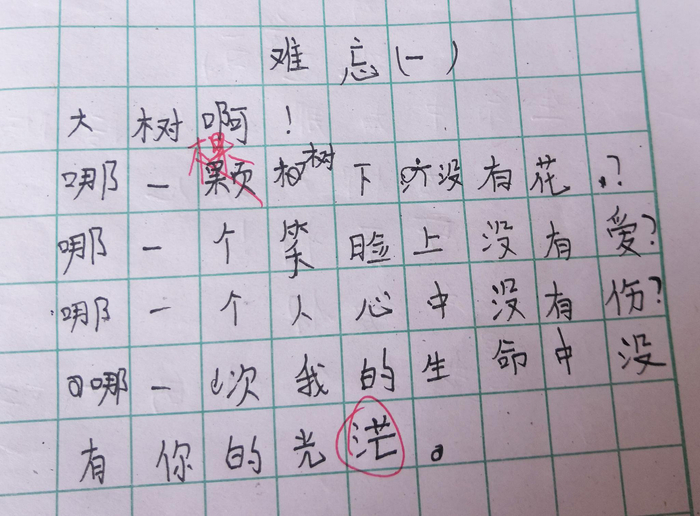 难忘(一)
大树啊!
哪一颗树下没有花?
哪一个笑脸上没有爱?
哪一个人心中没有伤?
哪一次我的生命中没
有你的光茫。